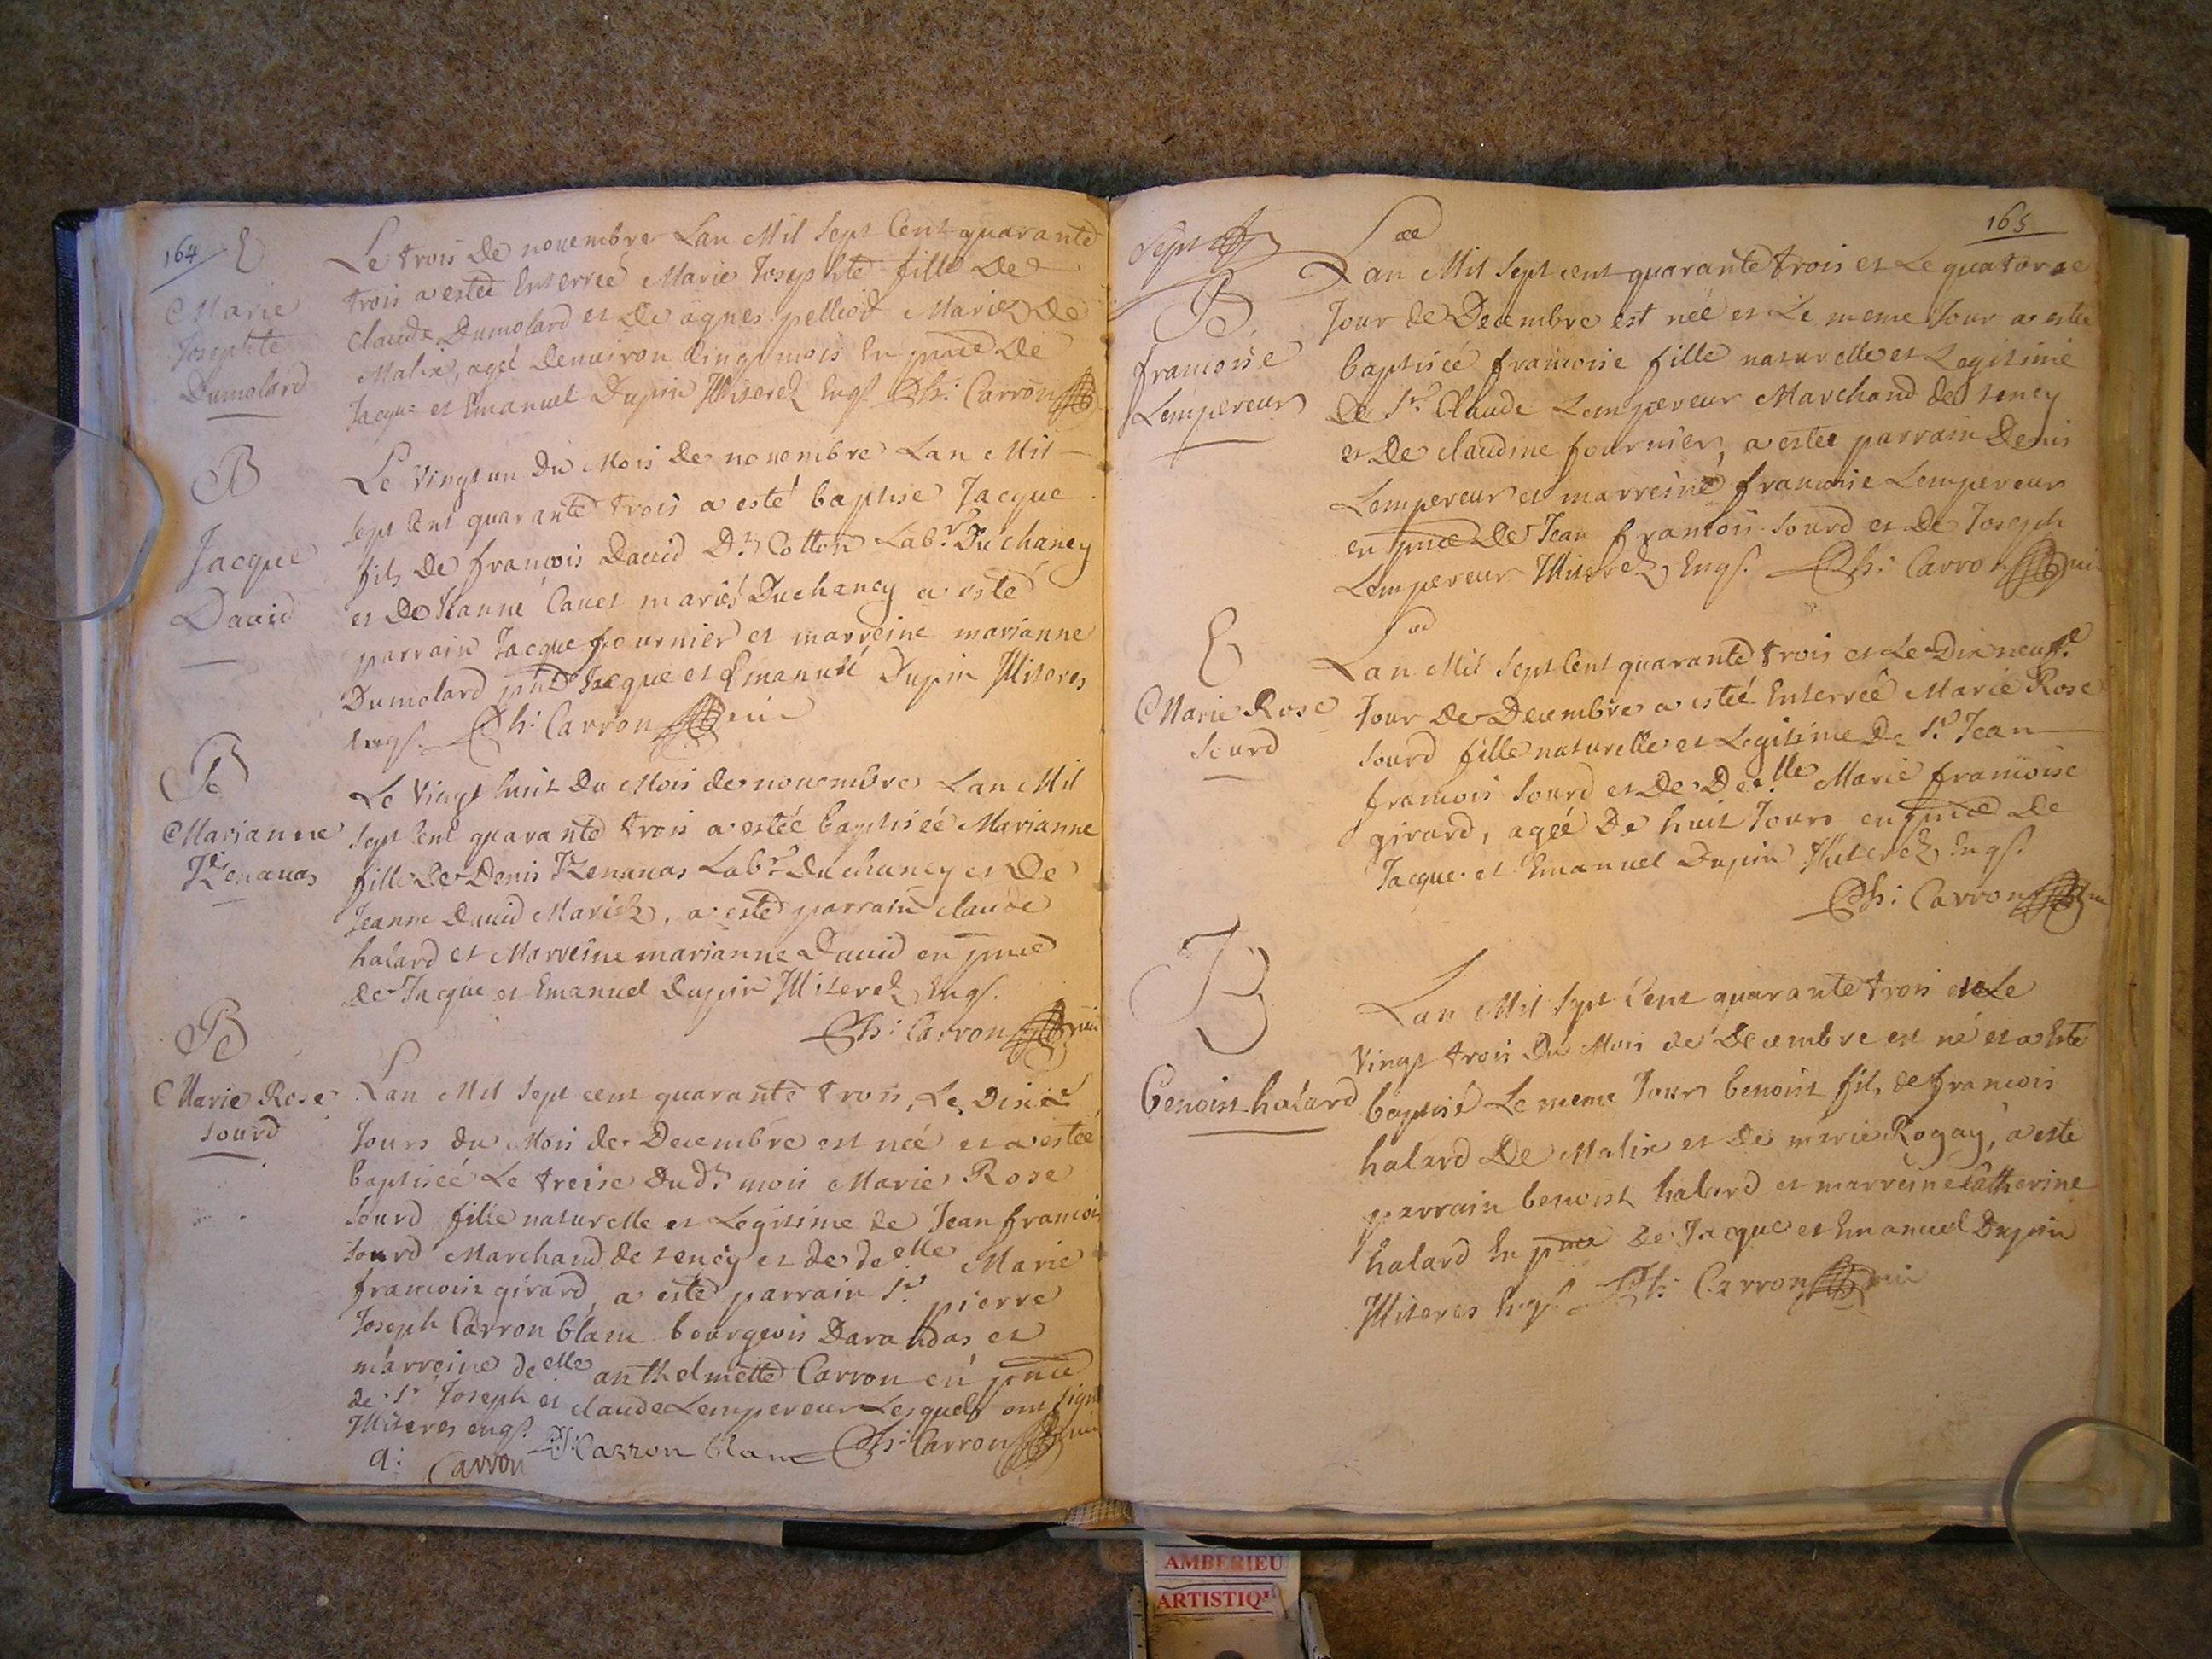 164
E
Marie
Josephte
Dumolard
Le trois De novembre Lan Mil sept Cent quarante
trois a estée Enterreé Marie Josephte fille De
claude Dumolard et De agnes Mariez De
Malix, ageé Denuiron Cinq mois En pnce De
Jacque et Emanuel Dupin Iltiterez Enqs. Ch: Carron
B
Jacque
Dauid
Le Vingt un Du Mois De nouembre Lan Mil
sept Cent quarante trois a esté baptise Jacque
fils De francois Dauid Dt. Cotton Labr. Du chaney
et De Jeanne Canet mariés Duchaney a esté
parrain Jacque fournier et marreine marianne
Dumolard pnt Jacque et Emanuel Dupin Iltteres
enqs. Ch: Carron
B
Marianne
Le Vingt huit Du Mois de nouembre Lan Mil
sept Cent quarante trois a esteé baptiseé Marianne
fille De Denis Labr. Du chaney et De
Jeanne Dauid Mariez, a esté parrain claude
halard et Marreine marianne Dauid en pnce
de Jacque et Emanuel Dupin Illiterez Enqs.
Ch: Carron
B
Marie Rose
Sourd
Lan Mil Sept cent quarante trois, Le Dixie
Jours du Mois de Decembre est neé et a esteé
baptiseé Le treise Dudt. mois Marie Rose
Sourd fille naturelle et Legitime de Jean francois
Sourd Marchand de tency et de delle Marie
francoise girard, a esté parrain Sr. pierre
Joseph Carron blanc bourgeois Darandas et
marreine delle anthelmette Carron en pnce
de Sr Joseph et claude Lempereur Lesquels ont signé
Iltteres enqs.
a: Carron Carron blanc Ch: Carron
165
Sept
B
francoise
Lempereur
Lan Mil Sept cent quarante trois et Le quatorze
Jour de Decembre est neé et Le meme Jour a estée
baptiseé francoise fille naturelle et Legitime
De Sr. Claude Lempereur Marchand de tency
et De claudine fournier, a estée parrain Denis
Lempereur et marreine francoise Lempereur
en pnce De Jean francois Sourd et De Joseph
Lempereur Illiterez Enqs. Ch: Carron
E
Marie Rose
Sourd
Lan Mil Sept Cent quarante trois et Le Dix neufe.
Jour de Decembre a esteé Enterreé Marie Rose
Sourd fille naturelle et Legitime De Sr. Jean
francois Sourd et De Delle. Marie francoise
girard, ageé De huit Jours en pnce de
Jacque et Emanuel Dupin Illiterez Enqs.
Ch: Carron
B
benoist halard
Lan Mil Sept Cent quarante trois et Le
Vingt trois Du Mois de Decembre est né et a Esté
baptisé Le meme Jour benoist fils de francois
halard De Malix et De marie Rogay, a esté
parrain benoist halard et marreine Catherine
halard En pnce De Jacque et Emanuel Dupin
Illiteres Enqs. Ch: Carron
AMBERIEU
ARTISTIQ